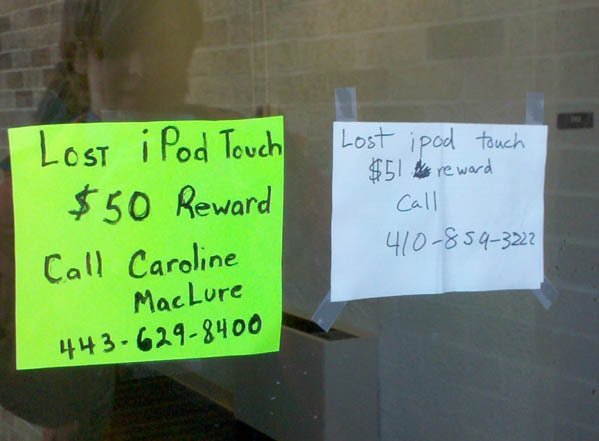 Lost iPod Touch
$50 Reward
Call Caroline
MacLure
443-629-8400
Lost ipod touch
$51 reward
Call
410-859-3222